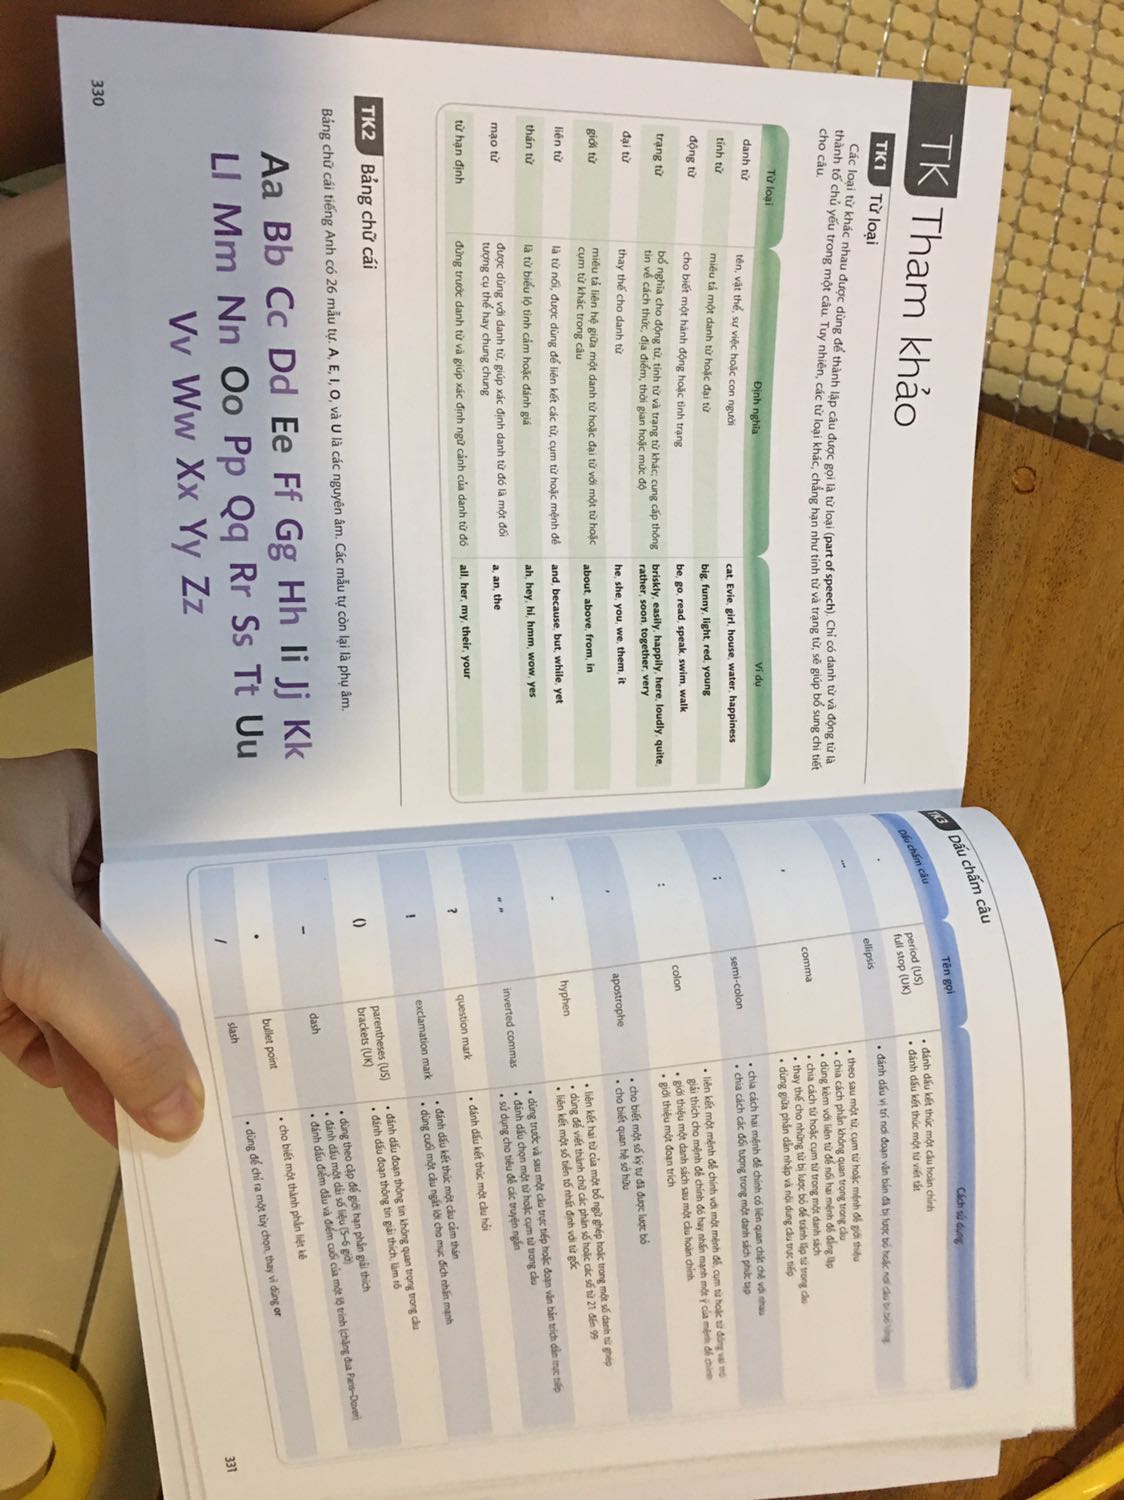 TK Tham khảo
TK1 Từ loại
Các loại từ khác nhau được dùng để thành lập câu được gọi là từ loại (part of speech). Chỉ có danh từ và động từ là
thành tố chủ yếu trong một câu. Tuy nhiên, các từ loại khác, chẳng hạn như tính từ và trạng từ, sẽ giúp bổ sung chi tiết
cho câu.
Từ loại Định nghĩa Ví dụ
danh từ tên, vật thể, sự việc hoặc con người cat, Evie, girl, house, water, happiness
tính từ miêu tả một danh từ hoặc đại từ big, funny, light, red, young
động từ cho biết một hành động hoặc tình trạng be, go, read, speak, swim, walk
trạng từ bổ nghĩa cho động từ, tính từ và trạng từ khác; cung cấp thông briskly, easily, happily, here, loudly, quite,
tin về cách thức, địa điểm, thời gian hoặc mức độ rather, soon, together, very
đại từ thay thế cho danh từ he, she, you, we, them, it
giới từ miêu tả liên hệ giữa một danh từ hoặc đại từ với một từ hoặc about, above, from, in
cụm từ khác trong câu
liên từ là từ nối, được dùng để liên kết các từ, cụm từ hoặc mệnh đề and, because, but, while, yet
thán từ là từ biểu lộ tình cảm hoặc đánh giá ah, hey, hi, hmm, wow, yes
mạo từ được dùng với danh từ, giúp xác định danh từ đó là một đối a, an, the
tượng cụ thể hay chung chung
từ hạn định đứng trước danh từ và giúp xác định ngữ cảnh của danh từ đó all, her, my, their, your
TK2 Bảng chữ cái
Bảng chữ cái tiếng Anh có 26 mẫu tự. A, E, I, O, và U là các nguyên âm. Các mẫu tự còn lại là phụ âm.
Aa Bb Cc Dd Ee Ff Gg Hh Ii Jj Kk
Ll Mm Nn Oo Pp Qq Rr Ss Tt Uu
Vv Ww Xx Yy Zz
330
TK3 Dấu chấm câu
Dấu chấm câu Tên gọi Cách sử dụng
. period (US) • đánh dấu kết thúc một câu hoàn chỉnh
full stop (UK) • đánh dấu kết thúc một từ viết tắt
... ellipsis • đánh dấu vị trí nơi đoạn văn bản đã bị lược bỏ hoặc nơi câu bị bỏ lửng
, comma • theo sau một từ, cụm từ hoặc mệnh đề giới thiệu
• chia cách phần không quan trọng trong câu
• dùng kèm với liên từ để nối hai mệnh đề đẳng lập
• chia cách từ hoặc cụm từ trong một danh sách
• thay thế cho những từ bị lược bỏ để tránh lặp từ trong câu
• dùng giữa phần dẫn nhập và nội dung câu trực tiếp
; semi-colon • chia cách hai mệnh đề chính có liên quan chặt chẽ với nhau
• chia cách các đối tượng trong một danh sách phức tạp
: colon • liên kết một mệnh đề chính với một mệnh đề, cụm từ hoặc từ đóng vai trò
giải thích cho mệnh đề chính đó hay nhấn mạnh một ý của mệnh đề chính
• giới thiệu một danh sách sau một câu hoàn chỉnh
• giới thiệu một đoạn trích
' apostrophe • cho biết một số ký tự đã được lược bỏ
• cho biết quan hệ sở hữu
- hyphen • liên kết hai từ của một bổ ngữ ghép hoặc trong một số danh từ ghép
• dùng để viết thành chữ các phân số hoặc các số từ 21 đến 99
• liên kết một số tiền tố nhất định với từ gốc
“ ” inverted commas • dùng trước và sau một câu trực tiếp hoặc đoạn văn bản trích dẫn trực tiếp
• đánh dấu chọn một từ hoặc cụm từ trong câu
• sử dụng cho tiêu đề các truyện ngắn
? question mark • đánh dấu kết thúc một câu hỏi
! exclamation mark • đánh dấu kết thúc một câu cảm thán
• dùng cuối một câu ngắt lời cho mục đích nhấn mạnh
() parentheses (US) • đánh dấu đoạn thông tin không quan trọng trong câu
brackets (UK) • đánh dấu đoạn thông tin giải thích, làm rõ
– dash • dùng theo cặp để giới hạn phần giải thích
• đánh dấu một dải số liệu (5–6 giờ)
• đánh dấu điểm đầu và điểm cuối của một lộ trình (chặng đua Paris–Dover)
• bullet point • cho biết một thành phần liệt kê
/ slash • dùng để chỉ ra một tùy chọn, thay vì dùng or
331